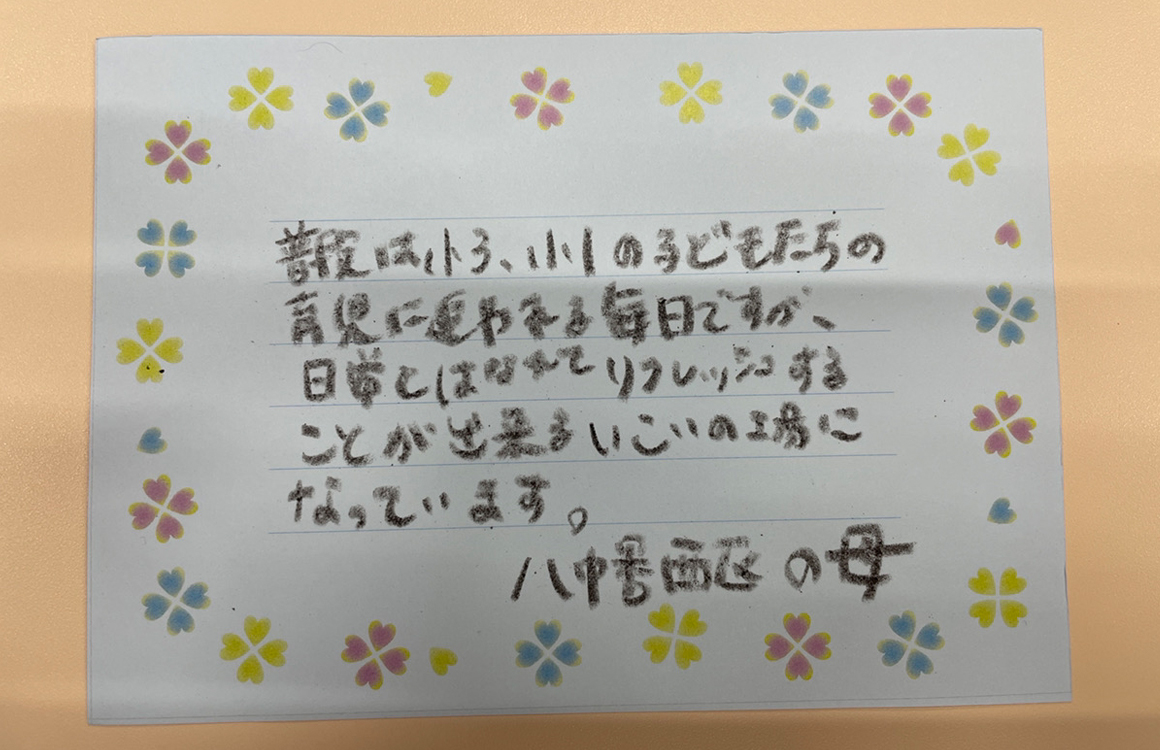 普段は小3、小1の子どもたちの
育児に追われる毎日ですが、
日常とはなれてリフレッシュする
ことが出来るいこいの場に
なっています。
八幡西区の母